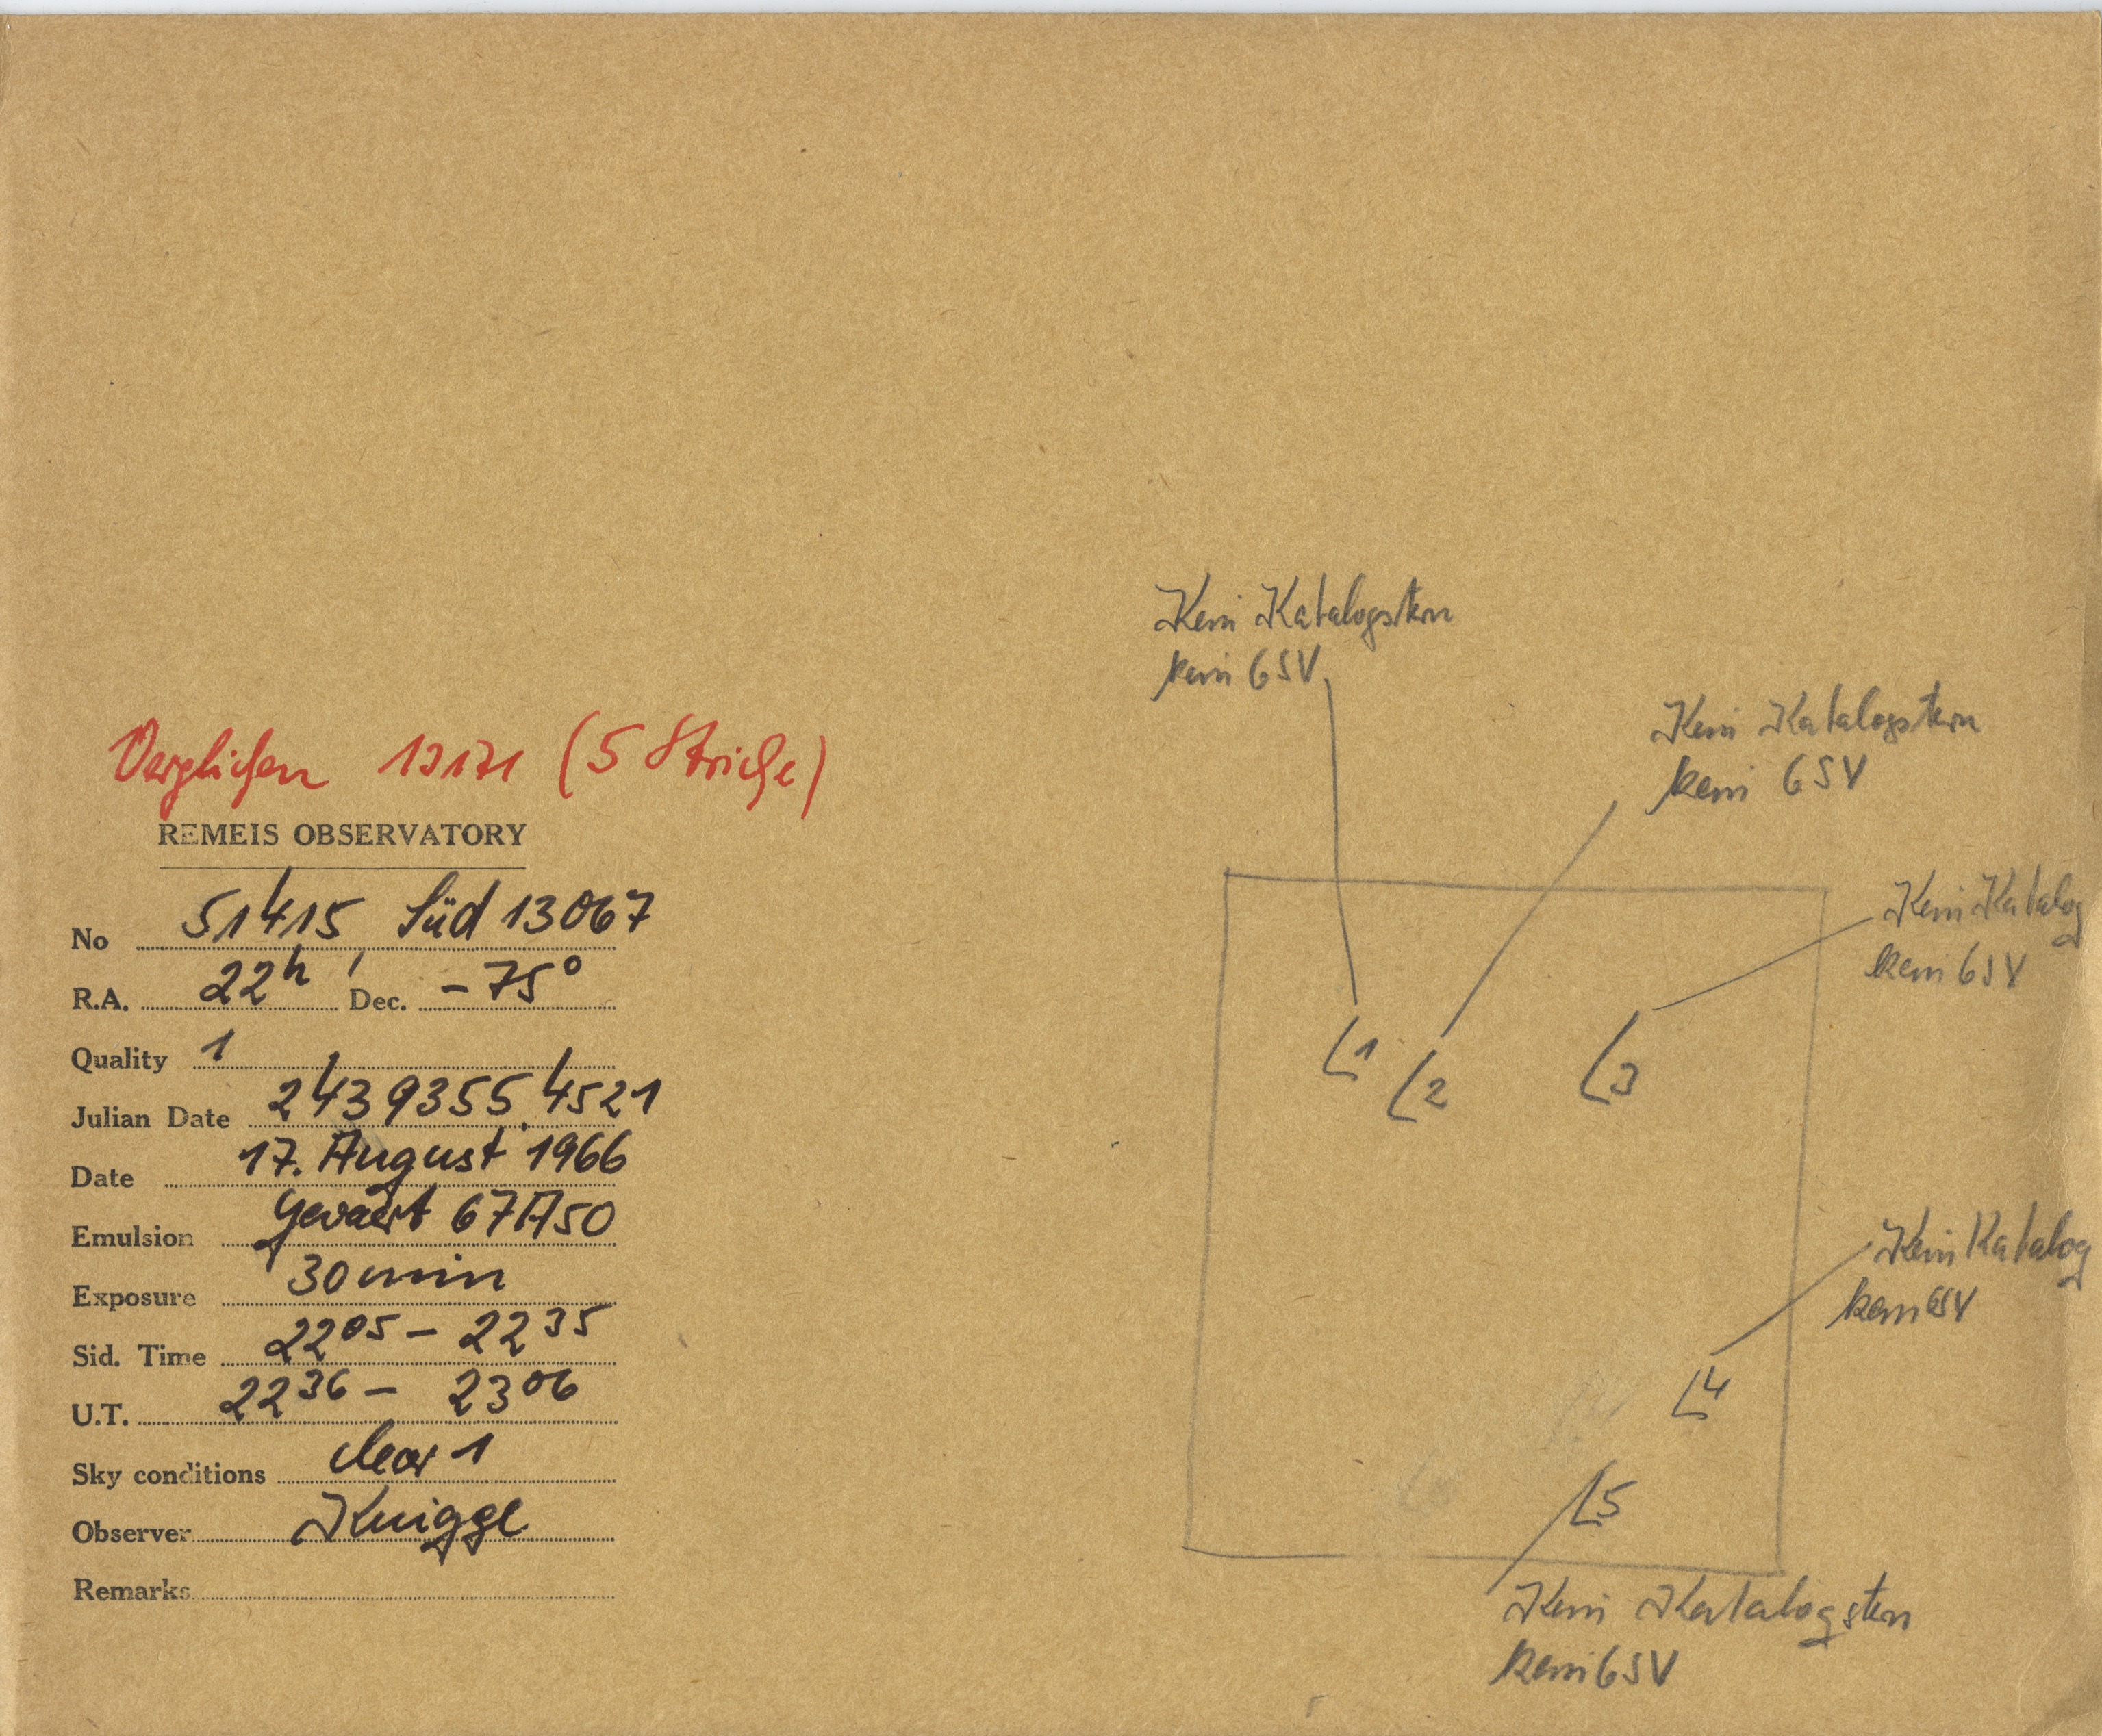 Verglichen 13171 (5 Striche)
REMEIS OBSERVATORY
No 51415, Süd 13067
R.A. 22h Dec. -75°
Quality 1
Julian Date 2439355.4521
Date 17. August 1966
Emulsion Gevaert 67A50
Exposure 30 min
Sid. Time 22 05 - 22 35
U.T. 22 36 - 23 06
Sky conditions clear 1
Observer Knigge
Remarks
Kein Katalogstern
kein GSV
Kein Katalogstern
kein GSV
Kein Katalog
kein GSV
1
2
3
Kein Katalog
kein GSV
4
5
Kein Katalogstern
kein GSV